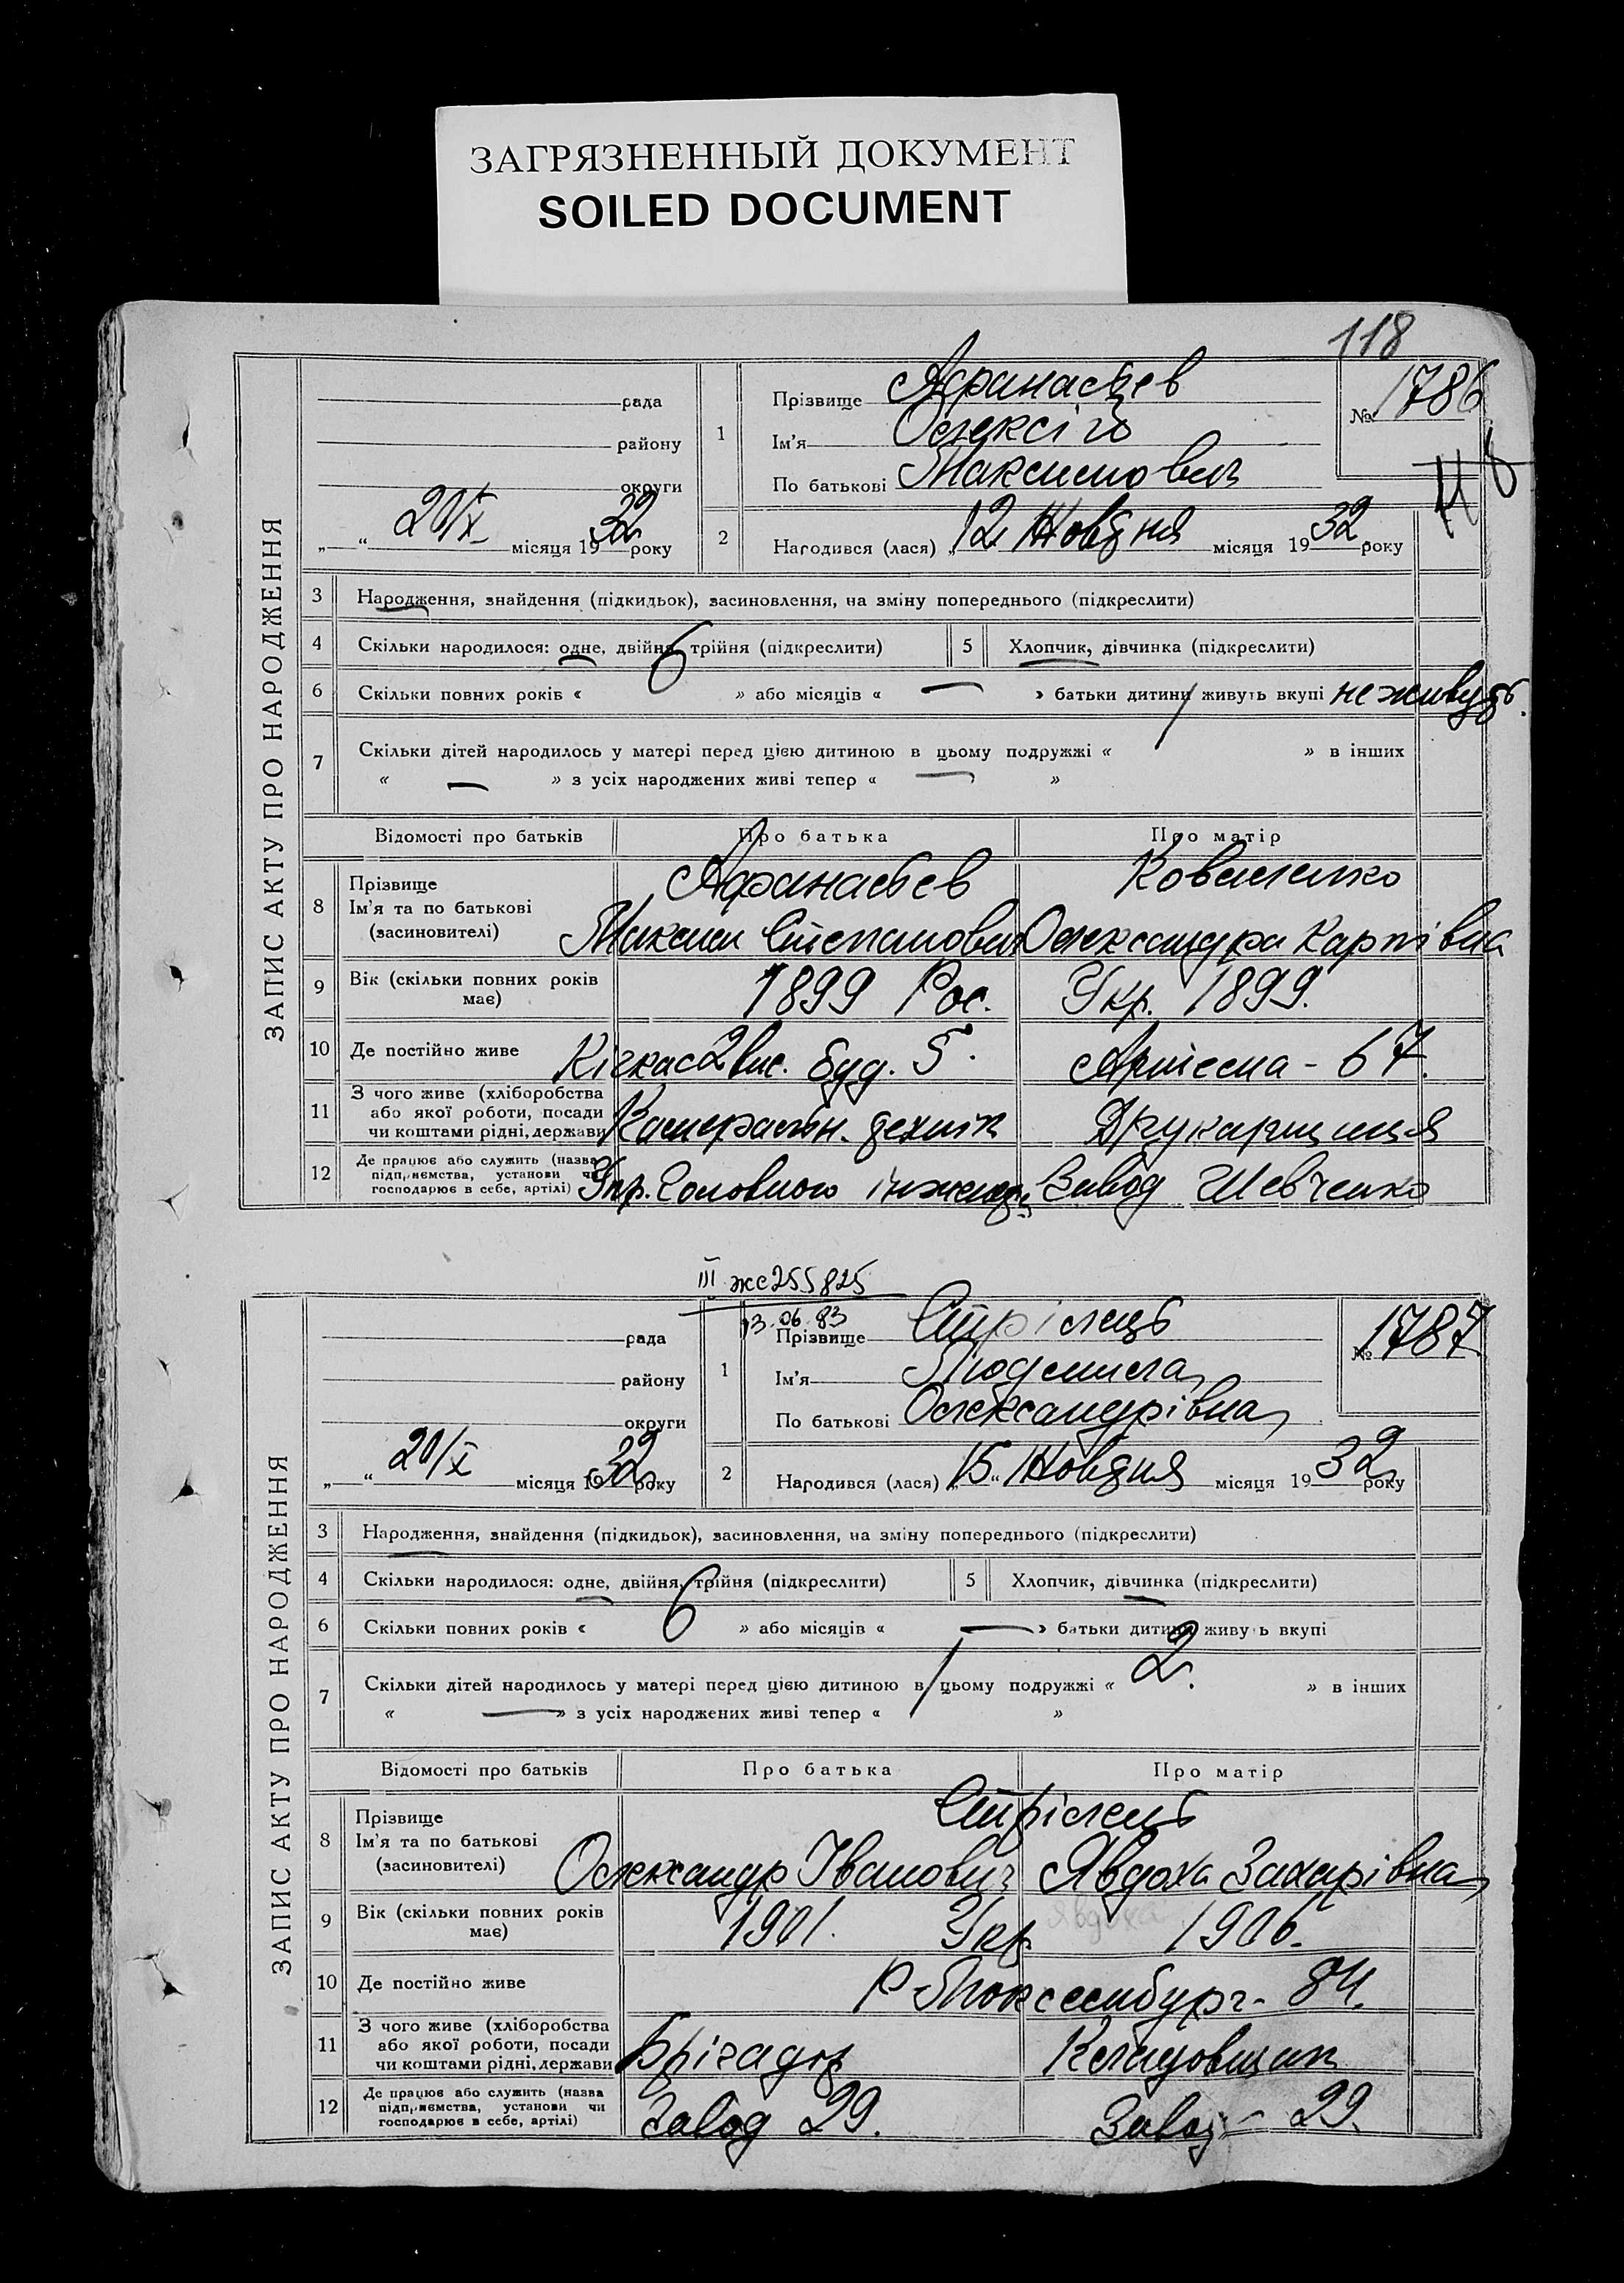 ЗАГРЯЗНЕННЫЙ ДОКУМЕНТ
SOILED DOCUMENT
118
ЗАПИС АКТУ ПРО НАРОДЖЕННЯ
рада
району
округи
„ “ 20/X місяця 1932 року
1
Прізвище Афанасьєв
Ім'я Олексій
По батькові Максимович
№ 1786
118
2
Народився (лася) „12 Жовтня місяця 1932 року
3 Народження, знайдення (підкидьок), засиновлення, на зміну попереднього (підкреслити)
4 Скільки народилося: одне, двійня, трійня (підкреслити) 5 Хлопчик, дівчинка (підкреслити)
6 Скільки повних років « 6 » або місяців « — » батьки дитини живуть вкупі не живуть.
7 Скільки дітей народилось у матері перед цією дитиною в цьому подружжі « / » в інших
« — » з усіх народжених живі тепер « — »
Відомості про батьків Про батька Про матір
8 Прізвище Ім'я та по батькові (засновителі)
Афанасьєв Коваленко
Максим Степанович Олександра Карпівна
9 Вік (скільки повних років має) 1899 Рос. Укр. 1899.
10 Де постійно живе Кічкас 2 вис. буд. 5. Артіома - 67.
11 З чого живе (хліборобства або якої роботи, посади чи коштами рідні, держави) технік Друкарщиця
12 Де працює або служить (назва підприємства, установи чи господарює в себе, артілі) Упр. Головного інженера Завод Шевченко
III жс 255825
13.06.83
ЗАПИС АКТУ ПРО НАРОДЖЕННЯ
рада
району
округи
„ “ 20/X місяця 1932 року
1
Прізвище Стрілець
Ім'я Людмила
По батькові Олександрівна
№ 1787
2
Народився (лася) „15“ Жовтня місяця 1932 року
3 Народження, знайдення (підкидьок), засиновлення, на зміну попереднього (підкреслити)
4 Скільки народилося: одне, двійня, трійня (підкреслити) 5 Хлопчик, дівчинка (підкреслити)
6 Скільки повних років « 6 » або місяців « — » батьки дитини живуть вкупі
7 Скільки дітей народилось у матері перед цією дитиною в цьому подружжі « 2. » в інших
« — » з усіх народжених живі тепер « / »
Відомості про батьків Про батька Про матір
8 Прізвище Ім'я та по батькові (засиновителі)
Стрілець
Олександр Іванович Явдоха Захарівна
Явдоха
9 Вік (скільки повних років має) 1901. Укр. 1906.
10 Де постійно живе Р-Люксембург- 84.
11 З чого живе (хліборобства або якої роботи, посади чи коштами рідні, держави) Брігадир Кладовщик
12 Де працює або служить (назва підприємства, установи чи господарює в себе, артілі) Завод 29. Завод - 29.